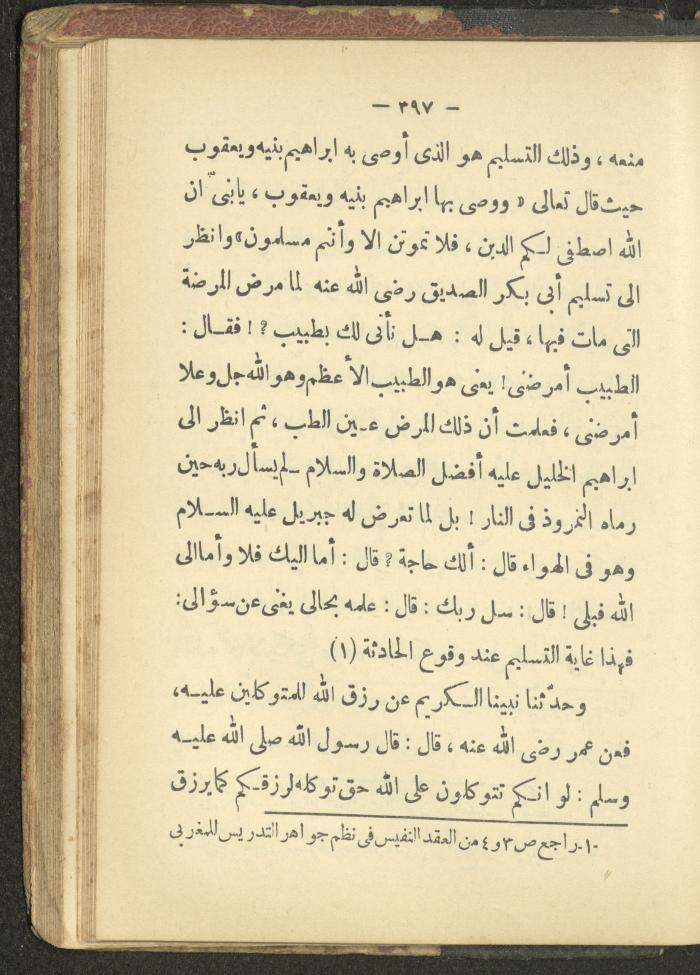 — ٣٩٧ —
منعه ، وذلك التسليم هو الذى أوصى به ابراهيم بنيه ويعقوب
حيث قال تعالى « ووصى بها ابراهيم بنيه ويعقوب ، يابنىّ ان
الله اصطفى لكم الدين ، فلا تموتن الا وأنتم مسلمون » وانظر
الى تسليم أبى بكر الصديق رضى الله عنه لما مرض المرضة
التى مات فيها ، قيل له : هل نأتى لك بطبيب ؟ ! فقال :
الطبيب أمرضنى ! يعنى هو الطبيب الأعظم وهو الله جل وعلا
أمرضنى ، فعلمت أن ذلك المرض عين الطب ، ثم انظر الى
ابراهيم الخليل عليه أفضل الصلاة والسلام لم يسأل ربه حين
رماه النمروذ فى النار ! بل لما تعرض له جبريل عليه السلام
وهو فى الهواء قال : ألك حاجة ؟ قال : أما اليك فلا وأما الى
الله فبلى ! قال : سل ربك : قال : علمه بحالى يغنى عن سؤالى :
فهذا غاية التسليم عند وقوع الحادثة (١)
وحدّثنا نبينا الكريم عن رزق الله للمتوكلين عليه ،
فعن عمر رضى الله عنه ، قال : قال رسول الله صلى الله عليه
وسلم : لو انكم تتوكلون على الله حق توكله لرزقكم كما يرزق
-١- راجع ص ٣ و ٤ من العقد النفيس فى نظم جواهر التدريس للمغربى